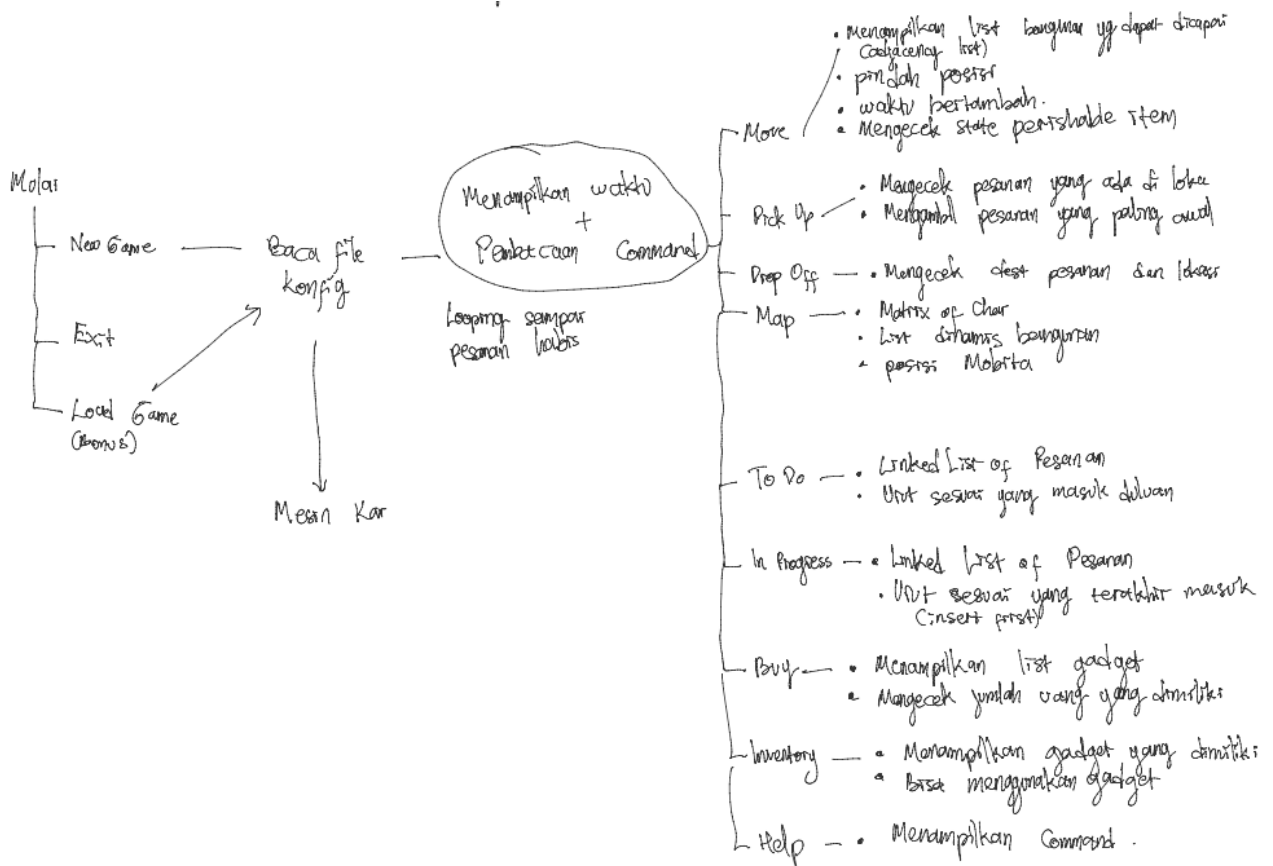 Mulai
New Game
Exit
Load Game
(Bonus)
Baca file
konfig
Mesin Kar
Menampilkan waktu
+
Pembacaan Command
Looping sampai
pesanan habis
Move
• Menampilkan list bangunan yg dapat dicapai
(adjacency list)
• pindah posisi
• waktu bertambah.
• Mengecek state perishable item
Pick Up
• Mengecek pesanan yang ada di loka
• Mengambil pesanan yang paling awal
Drop Off
• Mengecek dest pesanan dan lokasi
Map
• Matrix of Char
• List dinamis bangunan
• posisi Mobita
To Do
• Linked List of Pesanan
• Urut sesuai yang masuk duluan
In Progress
• Linked List of Pesanan
• Urut sesuai yang terakhir masuk
(insert first)
Buy
• Menampilkan list gadget
• Mengecek jumlah uang yang dimiliki
Inventory
• Menampilkan gadget yang dimiliki
• Bisa menggunakan gadget
Help
• Menampilkan Command.